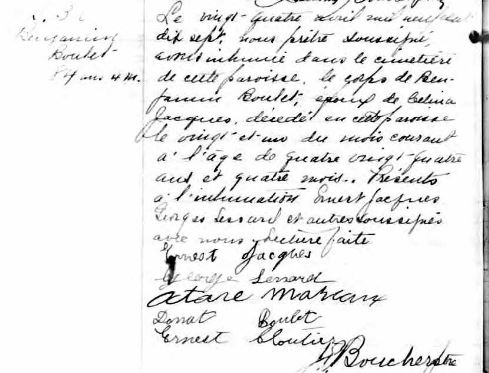 Benjamin
Boulet
84 ans 4 m.
Le vingt quatre avril mil neuf cent
dix sept, nous prêtre soussigné,
avons inhumé dans le cimetière
de cette paroisse, le corps de Ben-
jamin Boulet, époux de Celina
Jacques, décédé en cette paroisse
le vingt et un du mois courant
à l'âge de quatre vingt quatre
ans et quatre mois. Présents
à l'inhumation Ernest Jacques
Georges Lessard et autres soussignés
avec nous. Lecture faite
Ernest Jacques
George Lessard
Donat Boulet
Ernest Cloutier
Boucher ptre